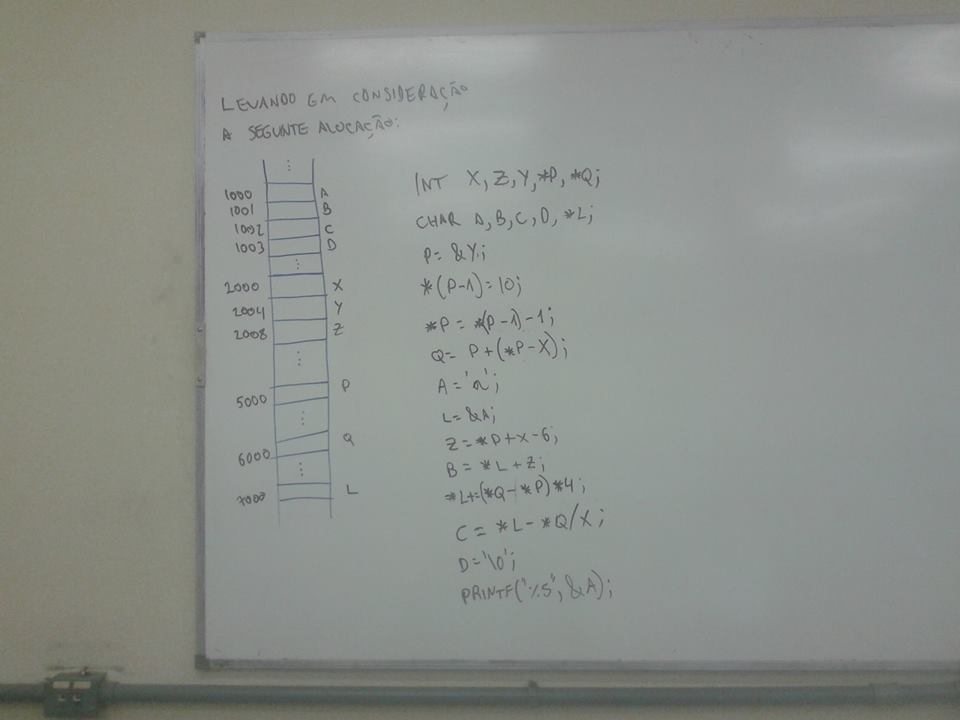 LEVANDO EM CONSIDERAÇÃO
A SEGUNTE ALOCAÇÃO:
1000 A
1001 B
1002 C
1003 D
2000 X
2004 Y
2008 Z
5000 P
6000 Q
7000 L
INT X, Z, Y, *P, *Q;
CHAR A, B, C, D, *L;
P= &Y;
*(P-1)=10;
*P = *(P-1)-1;
Q= P+(*P-X);
A='a';
L=&A;
Z=*P+X-6;
B= *L+Z;
*L+=(*Q-*P)*4;
C= *L-*Q/X;
D='\0';
PRINTF("%S", &A);